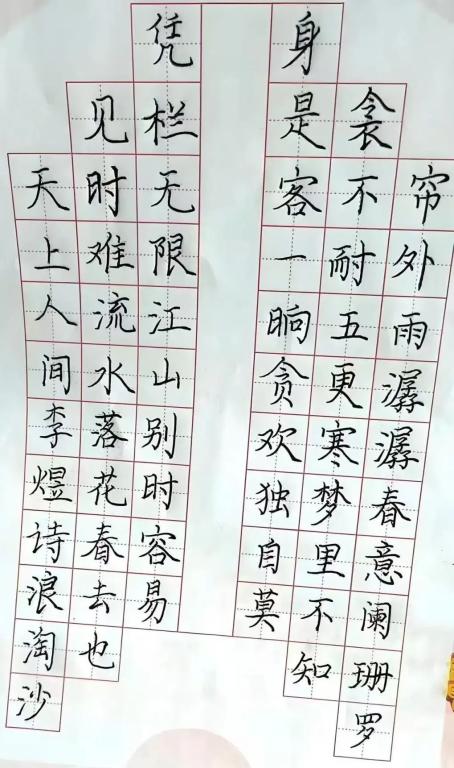 帘外雨潺潺春意阑珊罗
衾不耐五更寒梦里不知
身是客一晌贪欢独自莫
凭栏无限江山别时容易
见时难流水落花春去也
天上人间李煜诗浪淘沙